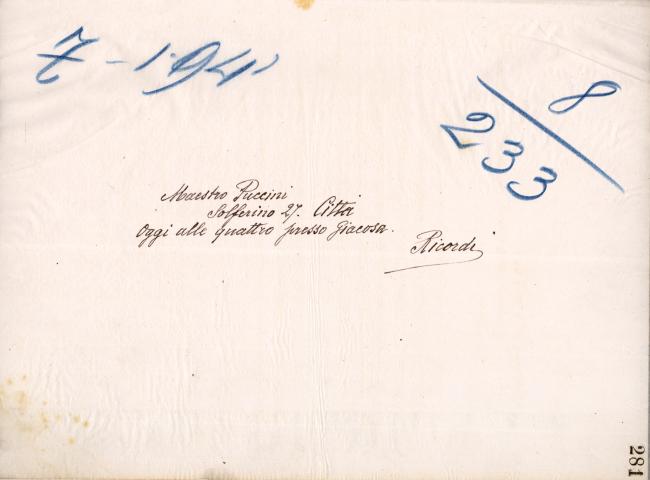 7-1-94'
8
233
Maestro Puccini
Solferino 27. Città
Oggi alle quattro presso Giacosa.
Ricordi
281